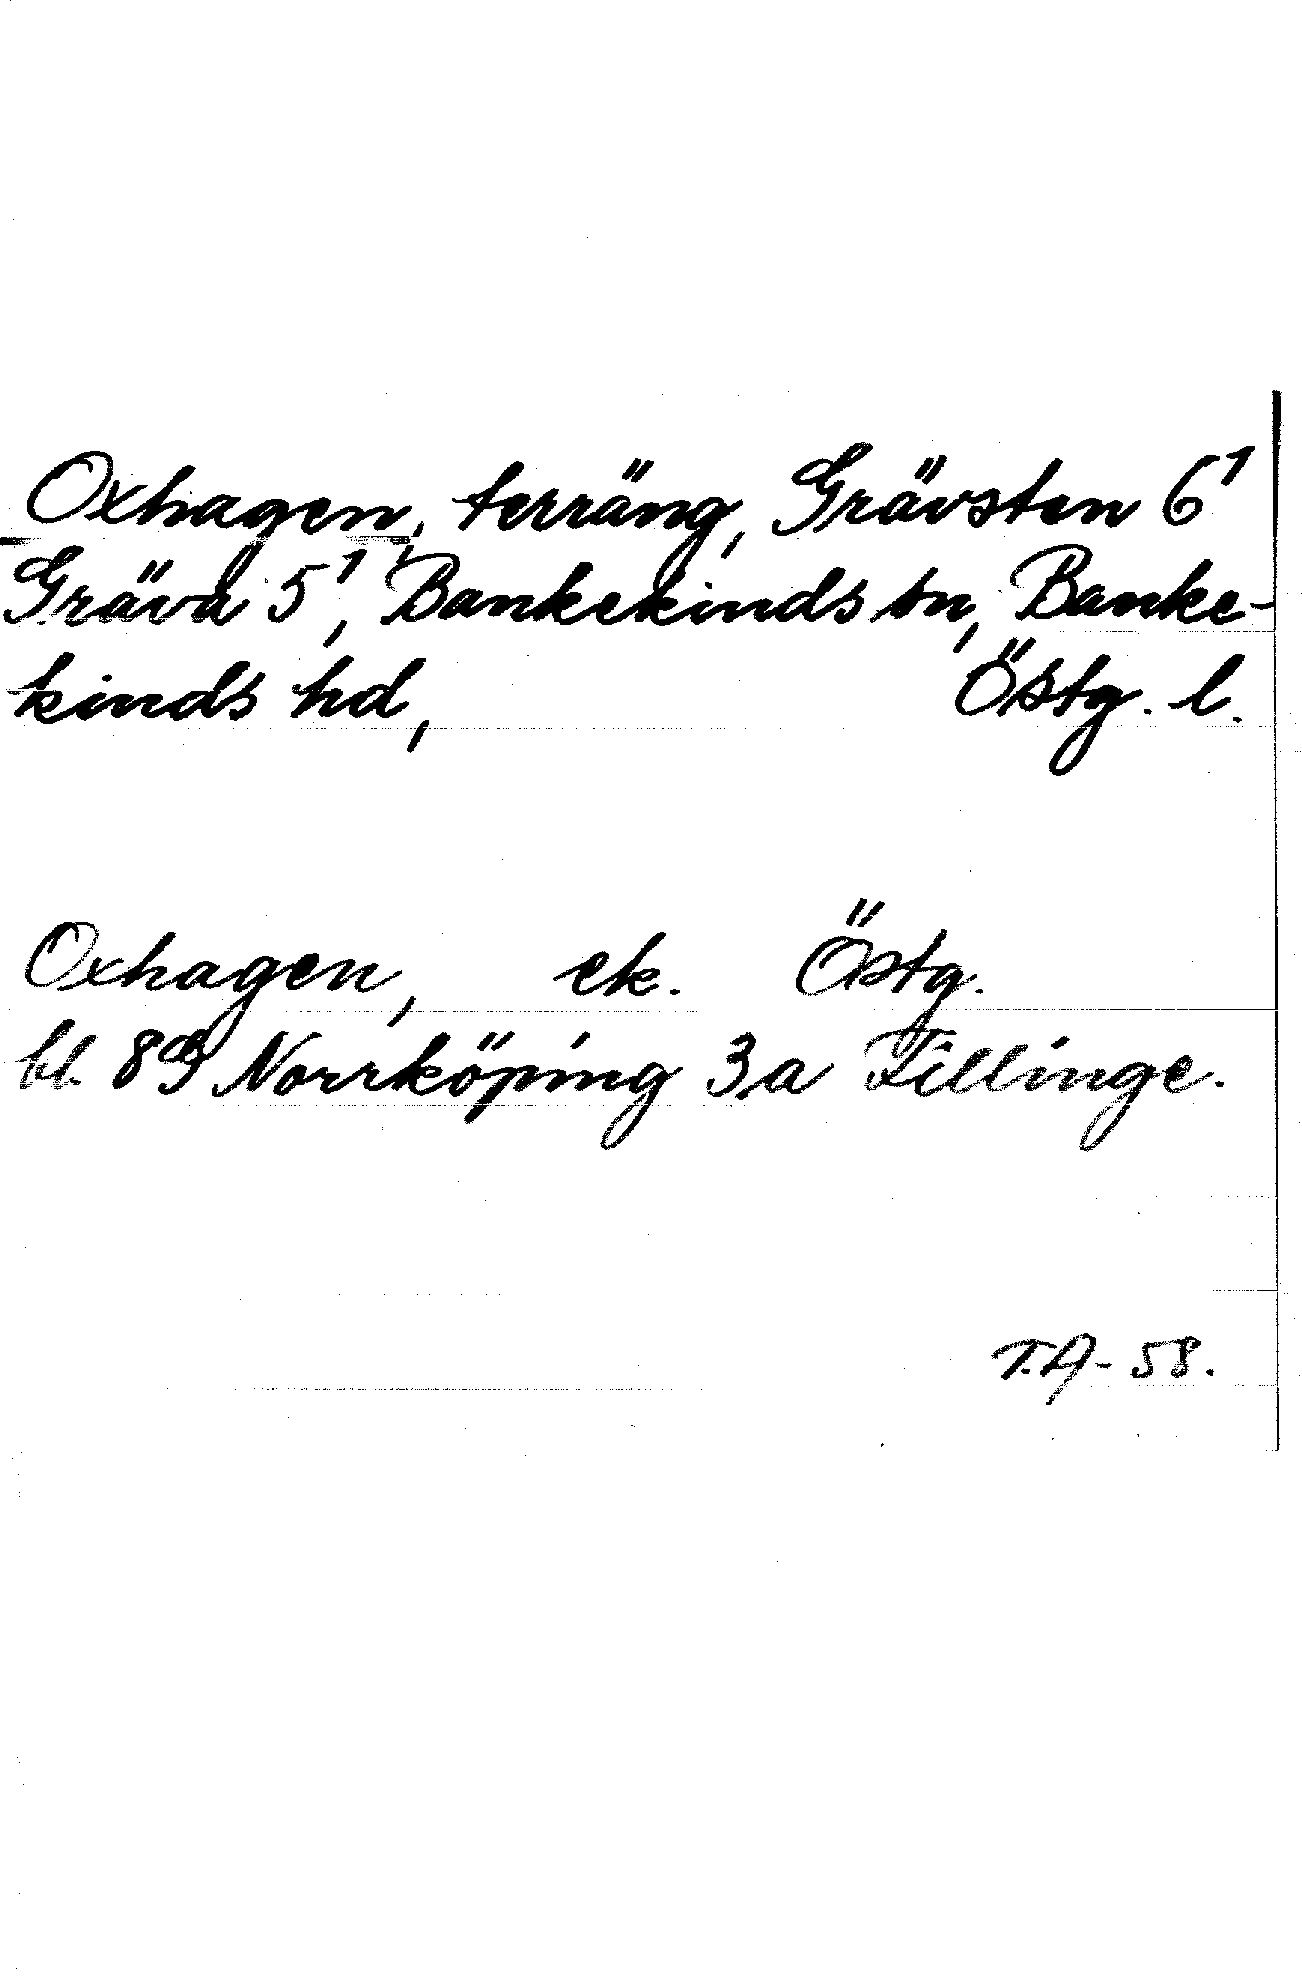 Oxhagen, terräng, Grävsten 6¹
Gräva 5¹, Bankekinds sn, Banke-
kinds hd, Östg. l.
Oxhagen, ek. Östg.
bl. 8G Norrköping 3a Fillinge.
T.A-58.